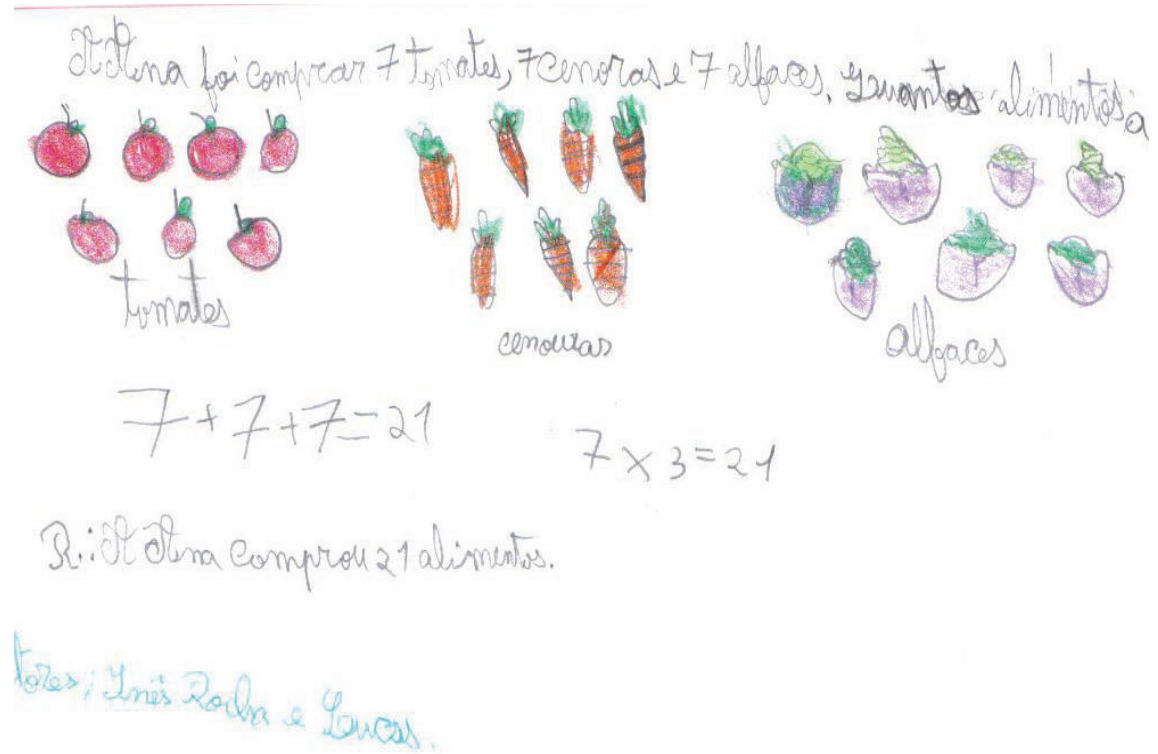 A Ana foi comprar 7 tomates, 7 cenoras e 7 alfaces. Quantos alimentos a
tomates
cenouras
alfaces
7+7+7=21
7x3=21
R.: A Ana comprou 21 alimentos.
tores: Inês Rocha e Lucas.